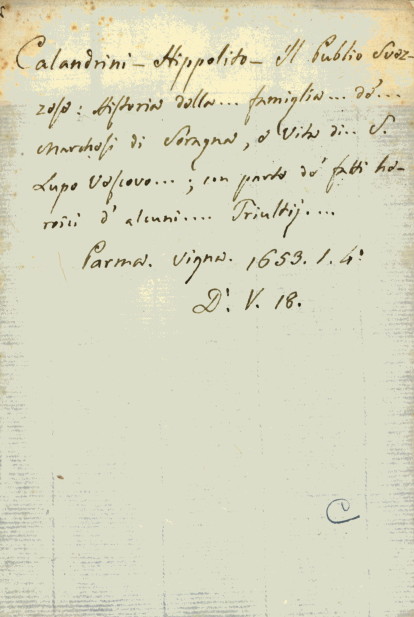 Calandrini - Hippolito - Il Publio Svez-
zese: Historia della... famiglia... de'...
Marchesi di Soragna, e Vita di... S.
Lupo Vescovo...; con parte de' fatti he-
roici d'alcuni.... Triultij....
Parma. Vigna. 1653. 1. 4°
D. V. 18.
C